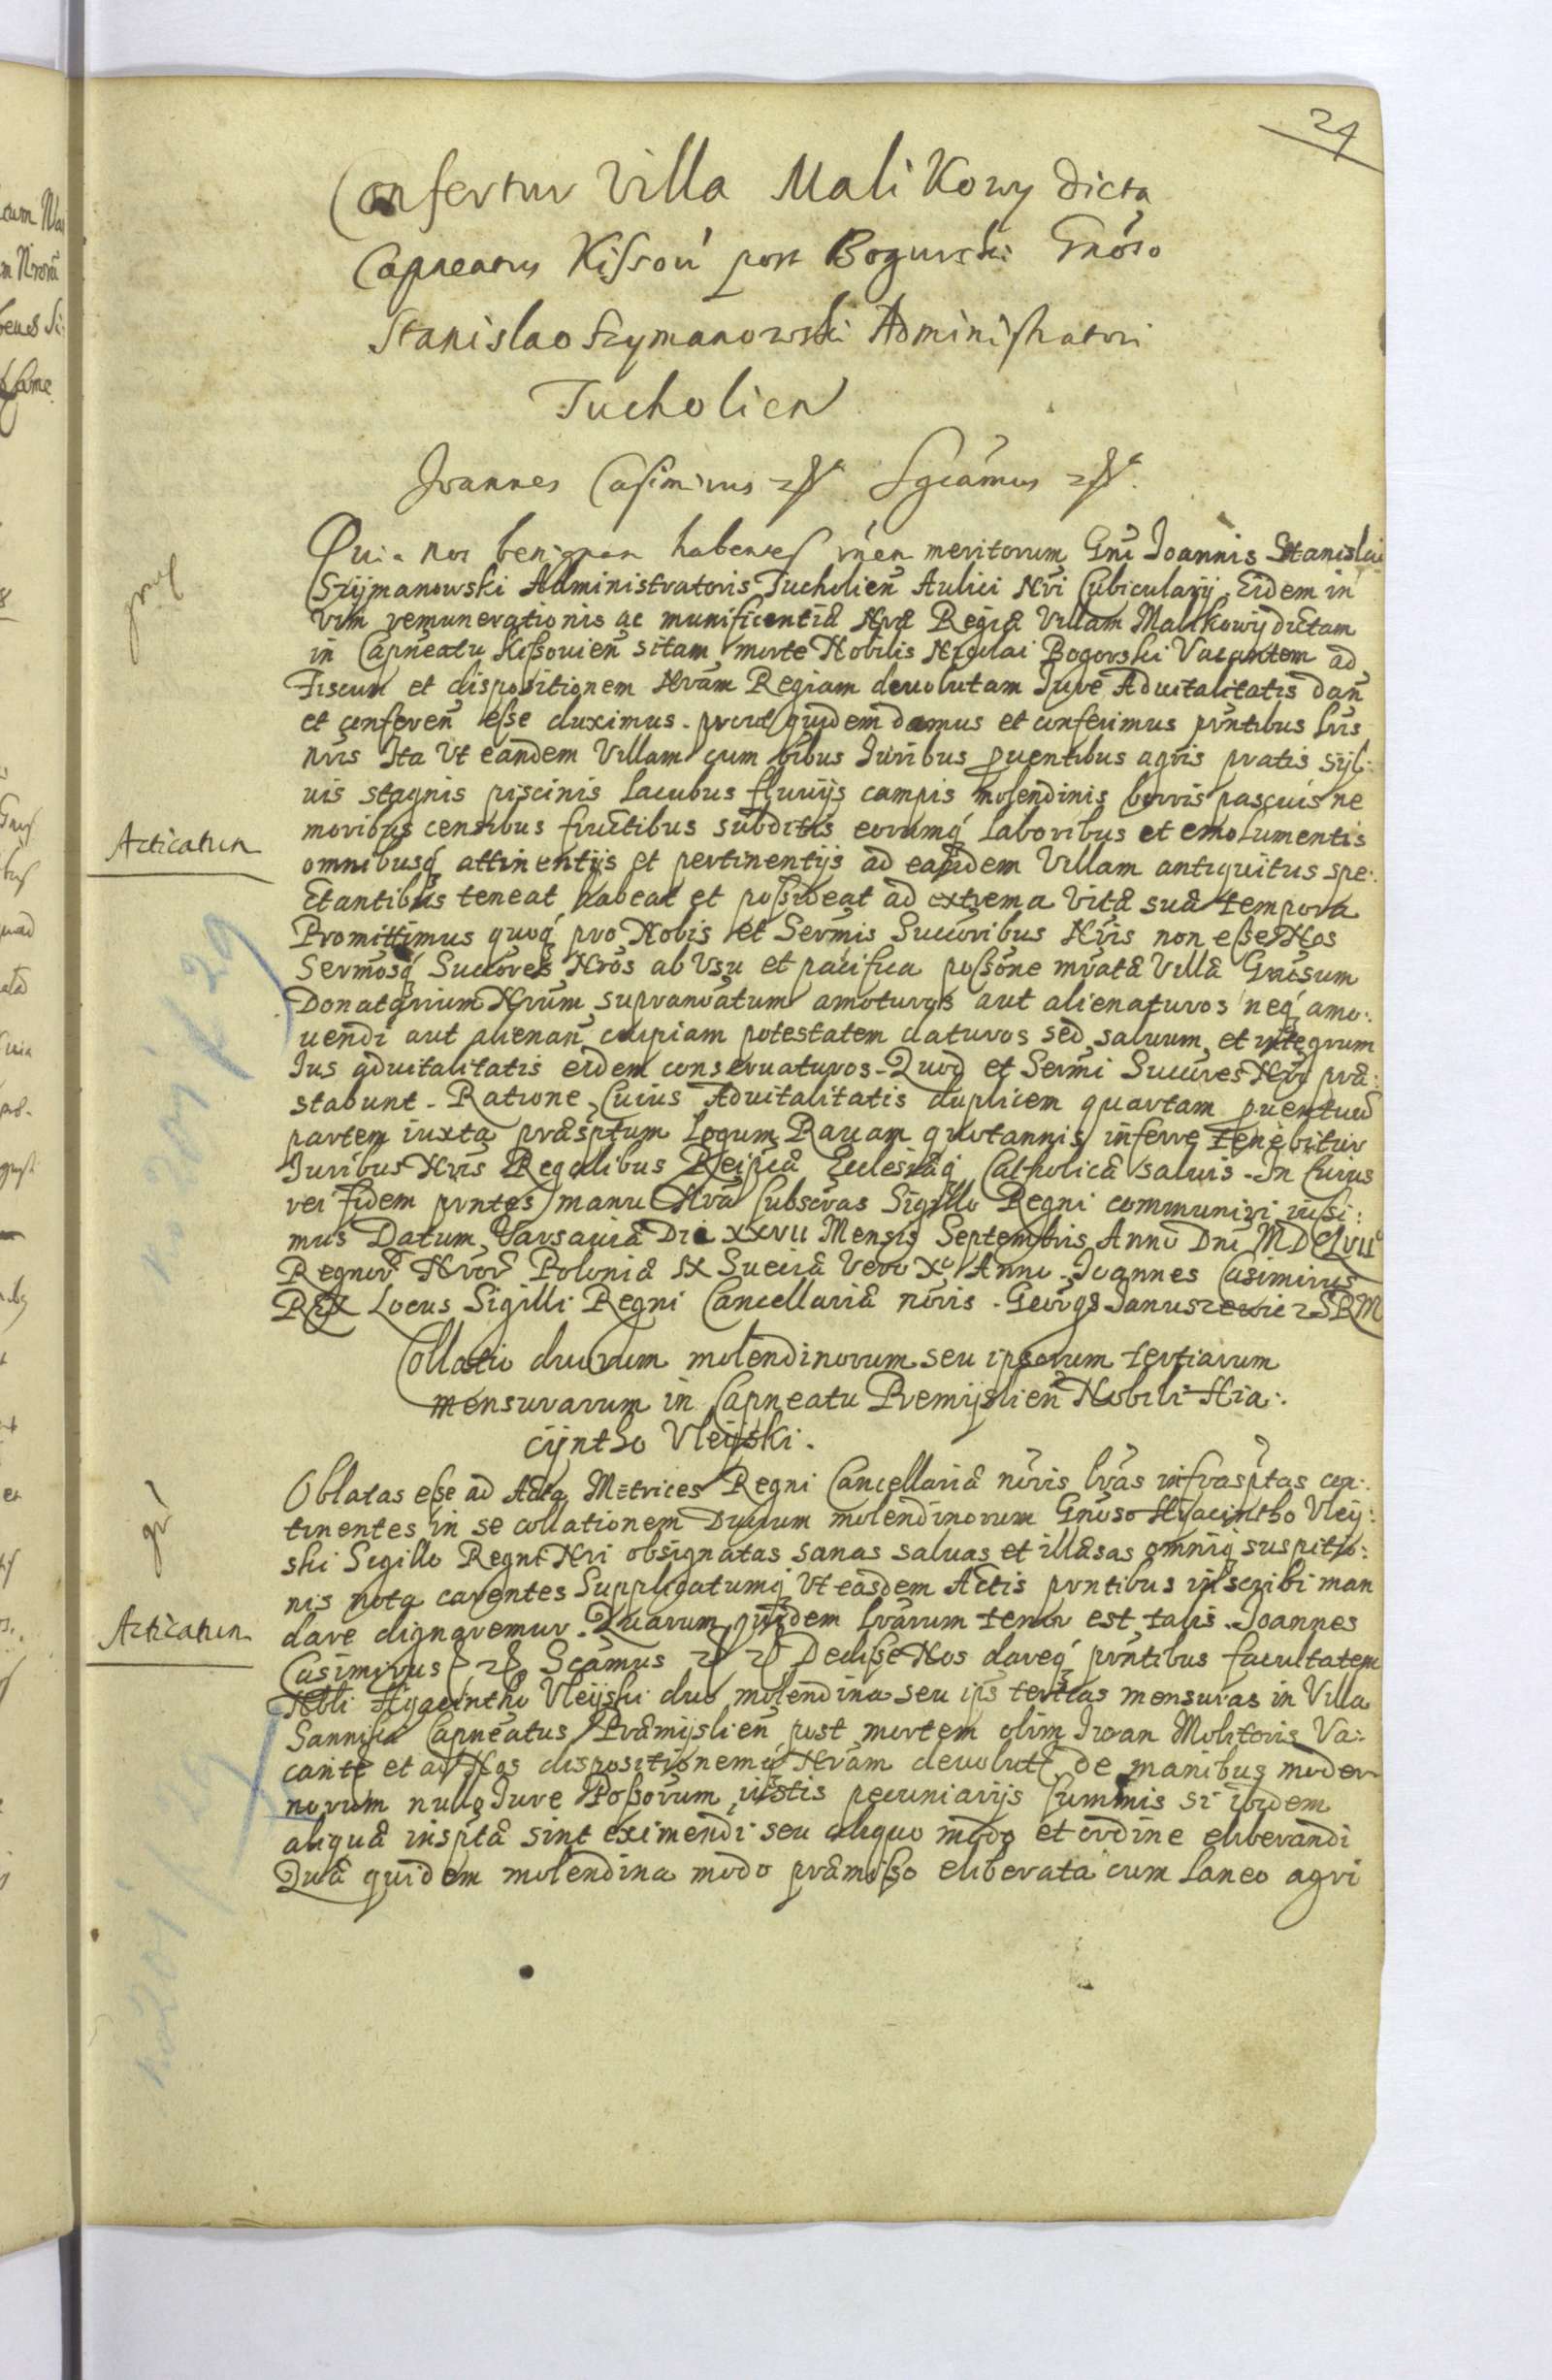 24
Confertur Villa Malikowy dicta
Capneatus Kissou post Bogurski Gnoso
Stanislao Szymanowski Administratori
Tucholien
Joannes Casimirus Sgcamus
Quia nos benignam habentes rnem meritorum Gni Joannis Stanislai
Szijmanowski Administratoris Tucholien Aulici Nri Cubicularij, Eidem in
vim remunerationis ac munificentiæ Nræ Regiæ Villam Malikowij dictam
in Capneatu Kissouien sitam morte Nobilis Nicolai Bogorski Vacantem ad
Fiscum et dispositionem Nram Regiam deuolutam Jure Aduitalitatis dan
et conferen esse duximus. prout quidem damus et conferimus pntibus lris
nris Ita Vt eandem Villam cum oibus Juribus prouentibus agris pratis syl:
uis stagnis piscinis lacubus fluuijs campis molendinis borris pascuis ne
moribus censibus fructibus subditis eorumq laboribus et emolumentis
omnibusq attinentijs et pertinentijs ad eandem Villam antiquitus spe:
Articatum
ctantibus teneat habeat et possideat ad extrema Vitæ suæ tempora
Promittimus quoq pro Nobis et Sermis Succoribus Nris non esse Nos
Sermosq Succores Nros ab Vsu et pacifica possone mratæ Villæ Gnosum
Donatarium Nrum supranratum amoturos aut alienaturos neq amo:
uendi aut alienan cuipiam potestatem daturos sed saluum et integrum
Jus aduitalitatis eidem conseruaturos. Quod et Sermi Succores Nri præ:
stabunt. Ratione Cuius Aduitalitatis duplicem quartam prouentuum
partem iuxta præsptum Legum Rauam quotannis inferre tenebitur
Juribus Nris Regalibus Reipcæ Ecclesiæq Catholicæ saluis. In Cuius
rei fidem pntes manu Nra Subscras Sigillo Regni communiri iussi:
mus Datum Varsauiæ Die XXVII Mensis Septembris Anno Dni MDCLVII
Regnor Nror Poloniæ IX Sueciæ Vero X Anno. Joannes Casimirus
REX Locus Sigilli Regni Cancellariæ noris. Georgs Januszewicz SRM
Collatio duorum molendinorum seu ipsorum tertiarum
mensurarum in Capneatu Premijslien Nobili Hia:
cijntho Vleijski.
Oblatas esse ad Acta Metrices Regni Cancellariæ noris lras infrasptas con:
tinentes in se collationem Duorum molendinorum Gnoso Hijacintho Vleij:
ski Sigillo Regni Nri obsignatas sanas saluas et illæsas omniq suspitio:
nis nota carentes Supplicatumq Vt easdem Actis pntibus inscribi man
Articatum
dare dignaremur. Quarum quidem lrarum tenor est talis. Joannes
Casimirus Scamus Dedisse Nos dareq pntibus facultatem
Nbli Hijacintho Vleijski duo molendina seu ips tertias mensuras in Villa
Sannica Capneatus Præmijslien post mortem olim Iwan Molitoris Va:
cante et ad Nos dispositionemq Nram deuolut de manibus moder
norum nullo Jure Possorum iustis pecuniarijs Summis si ibidem
aliquæ insptæ sint eximendi seu aliquo modo et ordine eliberandi
Quæ quidem molendina modo præmisso eliberata cum laneo agri